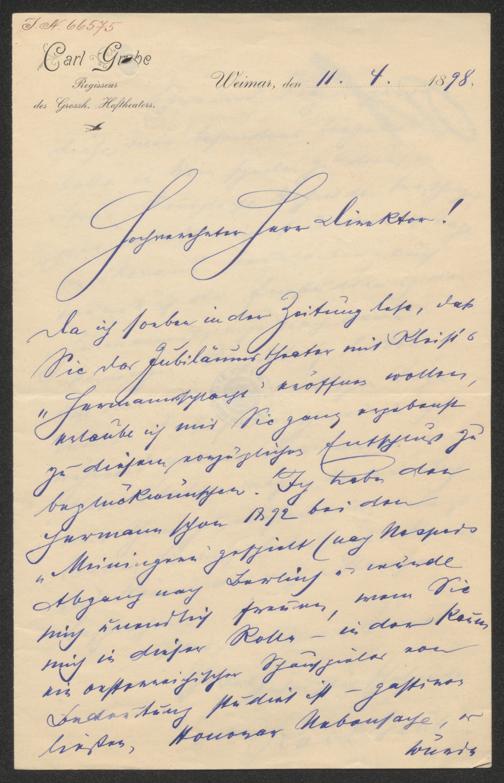 J. N. 66575
Carl Grebe
Regisseur
des Grossh. Hoftheaters.
Weimar, den 11. 4. 1898.
Hochverehrter Herr Direktor!
Da ich soeben in der Zeitung lese, daß
Sie das Jubiläumstheater mit Kleist's
„Hermannsschlacht" eröffnen wollen,
erlaube ich mir Sie ganz ergebenst
zu diesem vorzüglichen Entschluß zu
beglückwünschen. Ich habe den
Hermann schon 1892 bei den
„Meiningern gespielt (nach Nespers
Abgang nach Berlin) u würde
mich unendlich freuen, wenn Sie
mich in dieser Rolle – in der kaum
ein oesterreichischer Schauspieler von
Bedeutung studiert ist – gastieren
ließen, Honorar Nebensache, es
würde